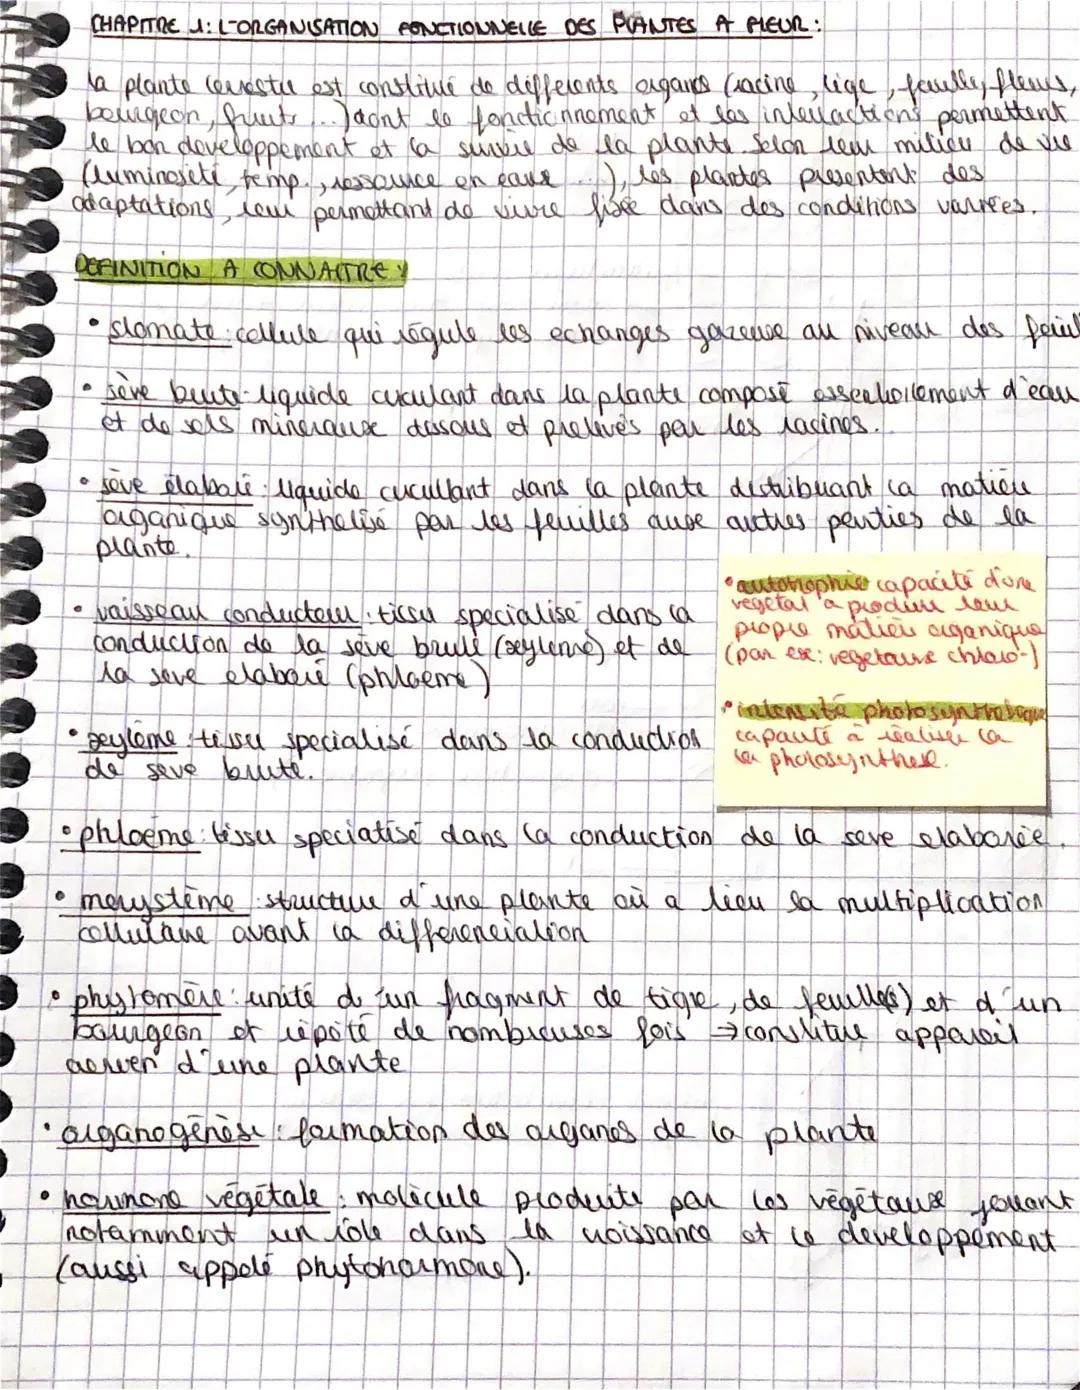 CHAPITRE 1: L'ORGANISATION FONCTIONNELLE DES PLANTES A FLEUR :
La plante terrestre est constitué de différents organes (racine, tige, feuille, fleurs,
bourgeon, fruits ...) dont le fonctionnement et les interactions permettent
le bon developpement et la survie de la plante. Selon leur milieu de vie
(luminosité, temp., ressource en eaux ...), les plantes présentent des
adaptations, leur permettant de vivre fixée dans des conditions variées.
DEFINITION A CONNAITRE :
• stomate : cellule qui régule les echanges gazeux au niveau des feuil
• sève brute : liquide circulant dans la plante composé essentiellement d'eau
et de sels mineraux dissous et prélevés par les racines.
• sève élaboré : liquide circullant dans la plante distribuant la matière
organique synthétisé par les feuilles aux autres parties de la
plante.
• vaisseau conducteur : tissu specialisé dans la
conduction de la sève brute (xylème) et de
la seve elaboré (phloeme)
• xylème : tissu specialisé dans la conduction
de seve brute.
• autotrophie capacité d'un
végétal a produire leur
propre matière organique
(par ex: vegetaux chloro-)
• intensité photosynthetique
capacité à réaliser la
la photosynthese.
• phloème : tissu specialisé dans la conduction de la seve elaborée.
• merystème : structure d'une plante où a lieu la multiplication
cellulaire avant la différenciation
• phytomère : unité d'un fragment de tige, de feuille(s) et d'un
bourgeon et répété de nombreuses fois → constitue appareil
aerien d'une plante
• organogénèse : formation des organes de la plante
• hormone végétale : molécule produite par les végétaux jouant
notamment un rôle dans la croissance et le developpement
(aussi appelé phytohormone).